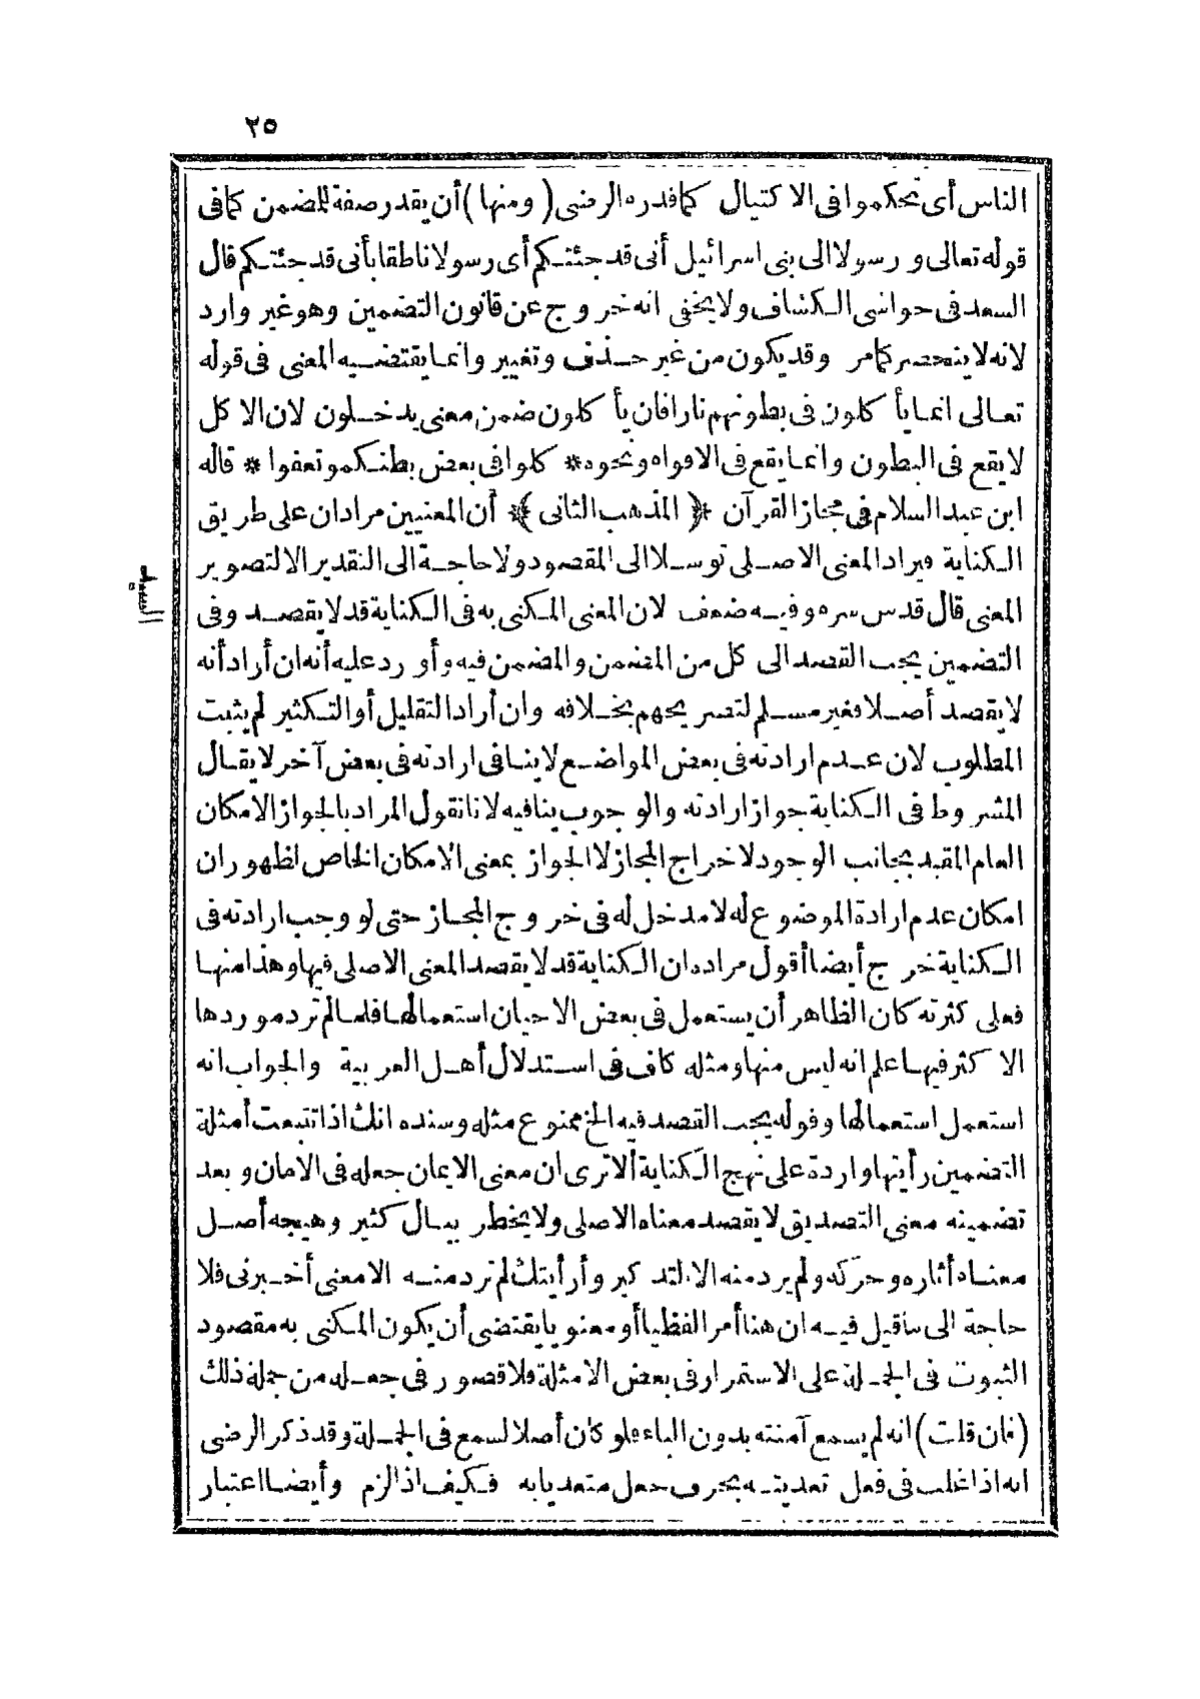 ٢٥
الناس أى تحكموا فى الاكتيال كما قدره الرضى (ومنها) أن يقدر صفة للمضمن كما فى
قوله تعالى ورسولا الى بنى اسرائيل أنى قد جئتكم أى رسولا ناطقا بأنى قد جئتكم قال
السعد فى حواشى الكشاف ولا يخفى انه خروج عن قانون التضمين وهو غير وارد
لانه لا ينحصر كما مر وقد يكون من غير حذف وتغيير وانما يقتضيه المعنى فى قوله
تعالى انما يأكلون فى بطونهم نارا فان يأكلون ضمن معنى يدخلون لان الاكل
لا يقع فى البطون وانما يقع فى الافواه ونحوه * كلوا فى بعض بطنكمو تعفوا * قاله
ابن عبد السلام فى مجاز القرآن * ﴿ المذهب الثانى ﴾ * أن المعنيين مرادان على طريق
الكناية فيراد المعنى الاصلى توسلا الى المقصود ولا حاجة الى التقدير الا لتصوير
المعنى قال قدس سره وفيه ضعف لان المعنى المكنى به فى الكناية قد لا يقصد وفى
السيد
التضمين يجب القصد الى كل من المضمن والمضمن فيه وأورد عليه أنه ان أراد أنه
لا يقصد أصلا فغير مسلم لتصريحهم بخلافه وان أراد التقليل أو التكثير لم يثبت
المطلوب لان عدم ارادته فى بعض المواضع لا ينافى ارادته فى بعض آخر لا يقال
المشروط فى الكناية جواز ارادته والوجوب ينافيه لانا نقول المراد بالجواز الامكان
العام المقيد بجانب الوجود لاخراج المجاز لا الجواز بمعنى الامكان الخاص لظهور ان
امكان عدم ارادة الموضوع له لا مدخل له فى خروج المجاز حتى لو وجب ارادته فى
الكناية خرج أيضا أقول مراده ان الكناية قد لا يقصد المعنى الاصلى فيها وهذا منها
فعلى كثرته كان الظاهر أن يستعمل فى بعض الاحيان استعمالها فلما لم ترد موردها
الاكثر فيها علم انه ليس منها ومثله كاف فى استدلال أهل العربية والجواب انه
استعمل استعمالها وقوله يجب القصد فيه الخ ممنوع مثله وسنده انك اذا تتبعت أمثلة
التضمين رأيتها واردة على نهج الكناية ألا ترى ان معنى الايمان جعله فى الامان وبعد
تضمينه معنى التصديق لا يقصد معناه الاصلى ولا يخطر ببال كثير وهيجه أصل
معناه أثاره وحركه ولم يرد منه الا التذكير وأرأيتك لم ترد منه الا معنى أخبرنى فلا
حاجة الى ما قيل فيه ان هنا أمر الفظيا أو معنويا يقتضى أن يكون المكنى به مقصود
الثبوت فى الجملة على الاستمرار فى بعض الامثلة فلا قصور فى جعله من جملة ذلك
(فان قلت) انه لم يسمع آمنته بدون الباء فلو كان أصلا لسمع فى الجملة وقد ذكر الرضى
انه اذا غلب فى فعل تعديته بحرف جعل متعديا به فكيف اذا لزم وأيضا اعتبار